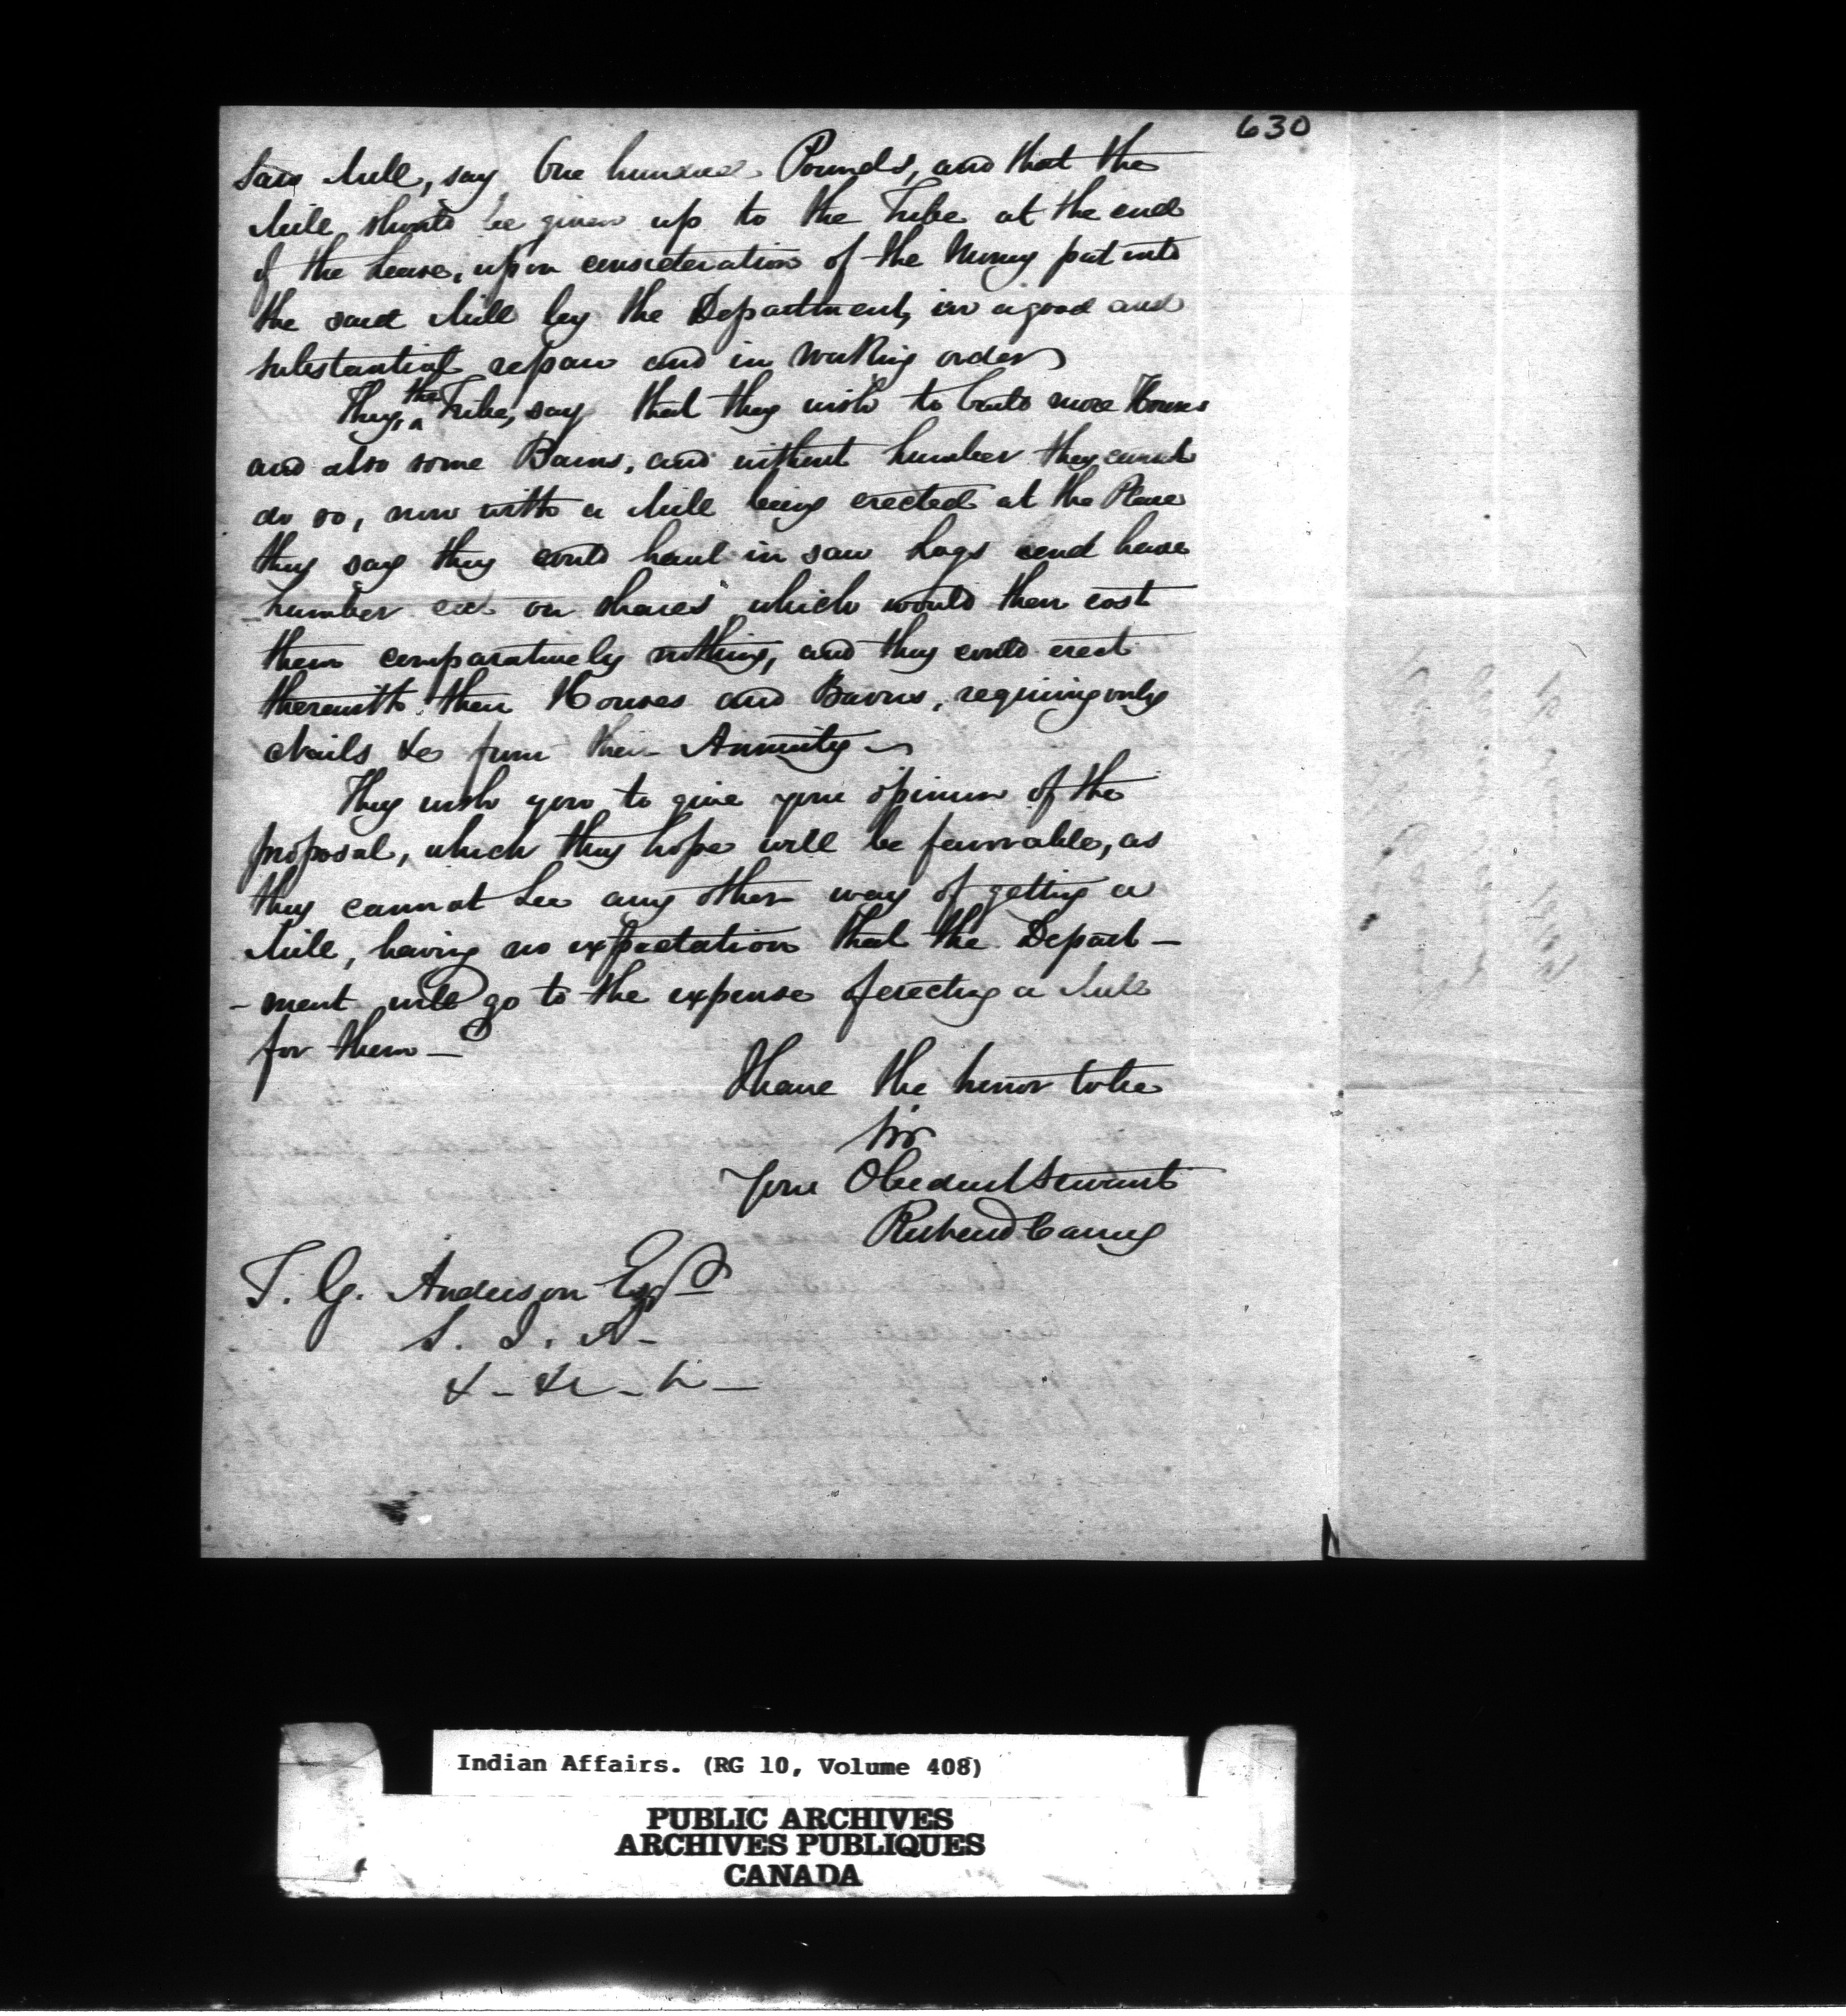 630
Saw Mill, say One hundred Pounds, and that the
Mill should be given up to the Tribe at the end
of the Lease, upon consideration of the Money put into
the said Mill by the Department, in a good and
substantial repair and in working order
They, the Tribe, say that they wish to build more Houses
and also some Barns, and without Lumber they cannot
do so, now with a Mill being erected at the Place
they say they could haul in saw Logs and have
Lumber cut on shares which would then cost
them comparatively nothing, and they could erect
therewith their Houses and Barns, requiring only
Nails &c from their Annuity
They wish you to give your opinion of the
proposal, which they hope will be favorable, as
they cannot see any other way of getting a
Mill, having no expectation that the Depart-
-ment will go to the expense of erecting a Mill
for them -
I have the honor to be
Sir
Your Obedient Servant
Richard Carney
T. G. Anderson Esqr
S. I. A -
& - &c - &c -
Indian Affairs. (RG 10, Volume 408)
PUBLIC ARCHIVES
ARCHIVES PUBLIQUES
CANADA